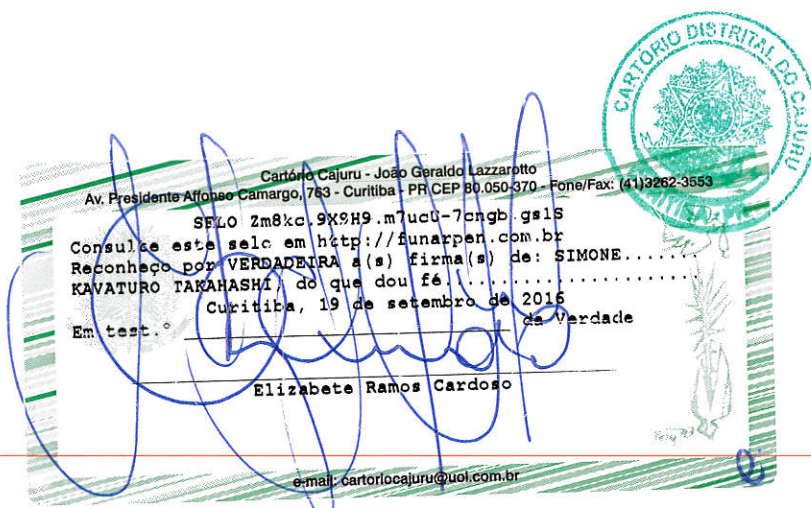 CARTÓRIO DISTRITAL DO CAJURU
Cartório Cajuru - João Geraldo Lazzarotto
Av. Presidente Affonso Camargo, 763 - Curitiba - PR CEP 80.050-370 - Fone/Fax: (41)3262-3553
SELO Zm8kc.9X9H9.m7ucU-7cngb.gs1S
Consulte este selo em http://funarpen.com.br
Reconheço por VERDADEIRA a(s) firma(s) de: SIMONE.......
KAVATURO TAKAHASHI, do que dou fé........................
Curitiba, 19 de setembro de 2016
Em test.° da Verdade
Elizabete Ramos Cardoso
e-mail: cartoriocajuru@uol.com.br